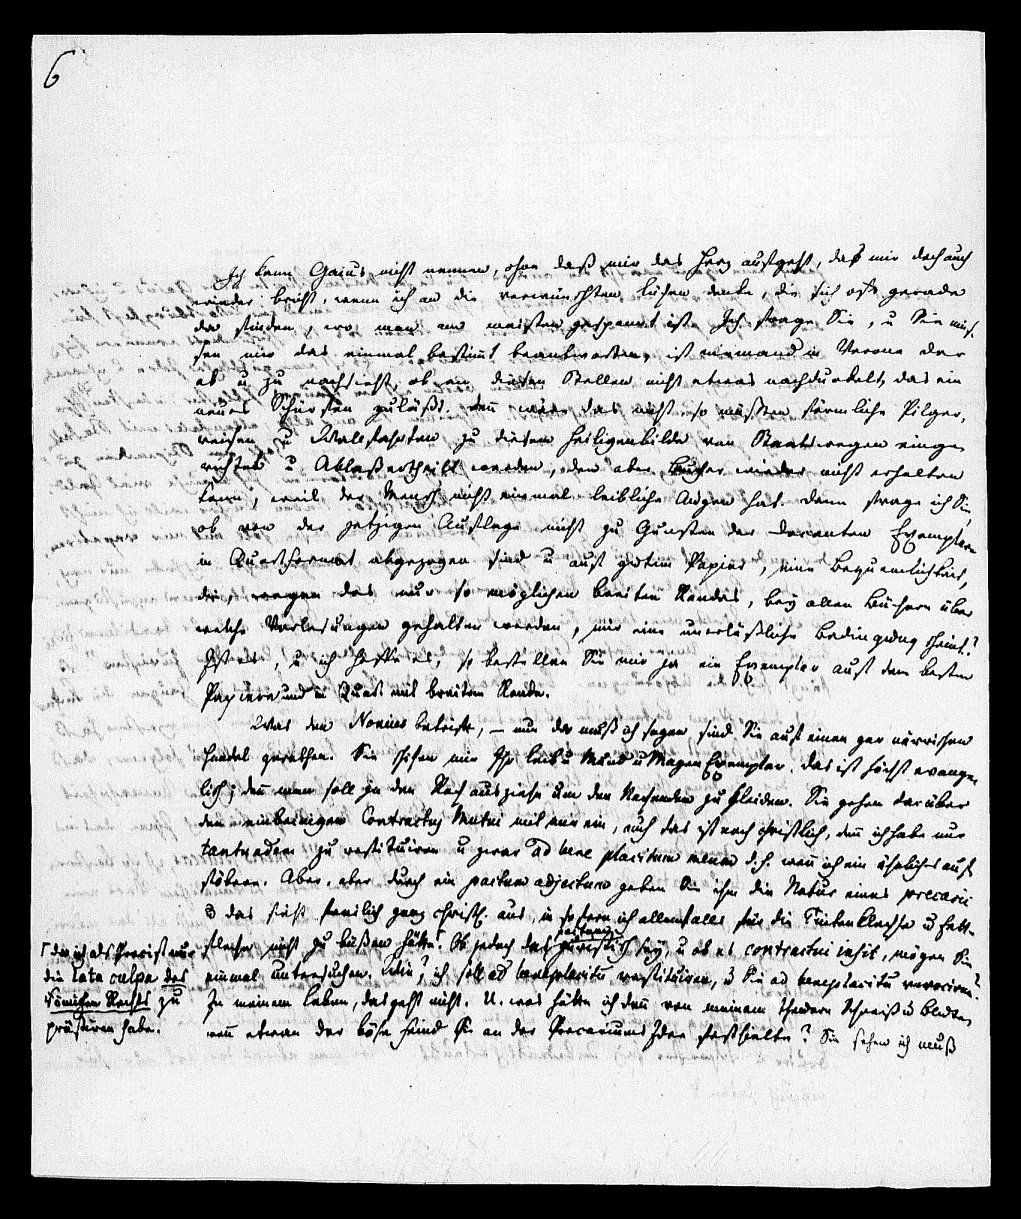 6
Ich kann Gaius nicht nennen, ohne daß mir das Herz aufgeht, daß mir doch auch
wieder bricht, wenn ich an die verwünschten Lücken denke, die sich oft gerade
da finden, wo man am meisten gespannt ist. Ich frage Sie, u Sie müs-
sen mir das einmal bestimt beantworten, ist niemand in Verona der
ab u zu nachsieht, ob an diesen Stellen nicht etwas nachdunkelt, das ein
neues zuläßt. Denn wäre das nicht so müßten förmliche Pilger,
reisen u Wallfahrten zu diesem Heiligenbilde von Staatswegen einge
richtet u Ablaß ertheilt werden, den aber Bucher wieder nicht erhalten
kann, weil der Mensch nicht einmal leibliche Augen hat. Dann frage ich Sie,
ob von der jetzigen Auflage nicht zu Gunsten der Docenten Exemplare
in Quartformat abgezogen sind u auf gutem Papier, eine Bequemlichkeit,
die, wegen des nur so möglichen breiten Randes, bey allen Büchern über
welche Vorlesungen gehalten werden, mir eine unerläßliche Bedingung scheint?
Ist es, u ich hoffe es, so bestellen Sie mir ja ein Exemplar auf dem besten
Papiere und in Quart mit breitem Rande.
Was den Nonius betrift, – nun da muß ich sagen sind Sie auf einen gar närrischen
Handel gerathen. Sie schicken mir Ihr Leib u Mund u Magen Exemplar. das ist höchst evange
lisch; denn man soll ja den Rock ausziehn um den Nackenden zu kleiden. Sie gehen darüber
den einbeinigen Contractus Mutui mit mir ein, auch das ist noch christlich, denn ich habe nur
tantundem zu restituiren u zwar ad bene placitum meum d.h. wenn ich ein ähnliches auf
stöbere. Aber, aber durch ein pactum adjectum geben Sie ihm die Natur eines precarii
u das sieht freilich ganz christl. aus, in so fern ich allenfalls für die Tintenkleckse u Fett-
flecken nicht zu büßen hätte. Ob jedoch das pactum juristisch sey, u ob es contractui insit, mögen Sie
einmal untersuchen. Wie? ich soll ad beneplacitu restituiren, u Sie ad beneplacitu revociren?
In meinem Leben, das geht nicht. U. was hätte ich denn von meinem theuern Schweiß u Bluten,
wenn etwan der böse Feind Sie an der Precariums Idee festhielte? Sie sehen ich muß
⌈der ich als Precist nur
die Lata culpa des
Römischen Rechts zu
prästiren habe.